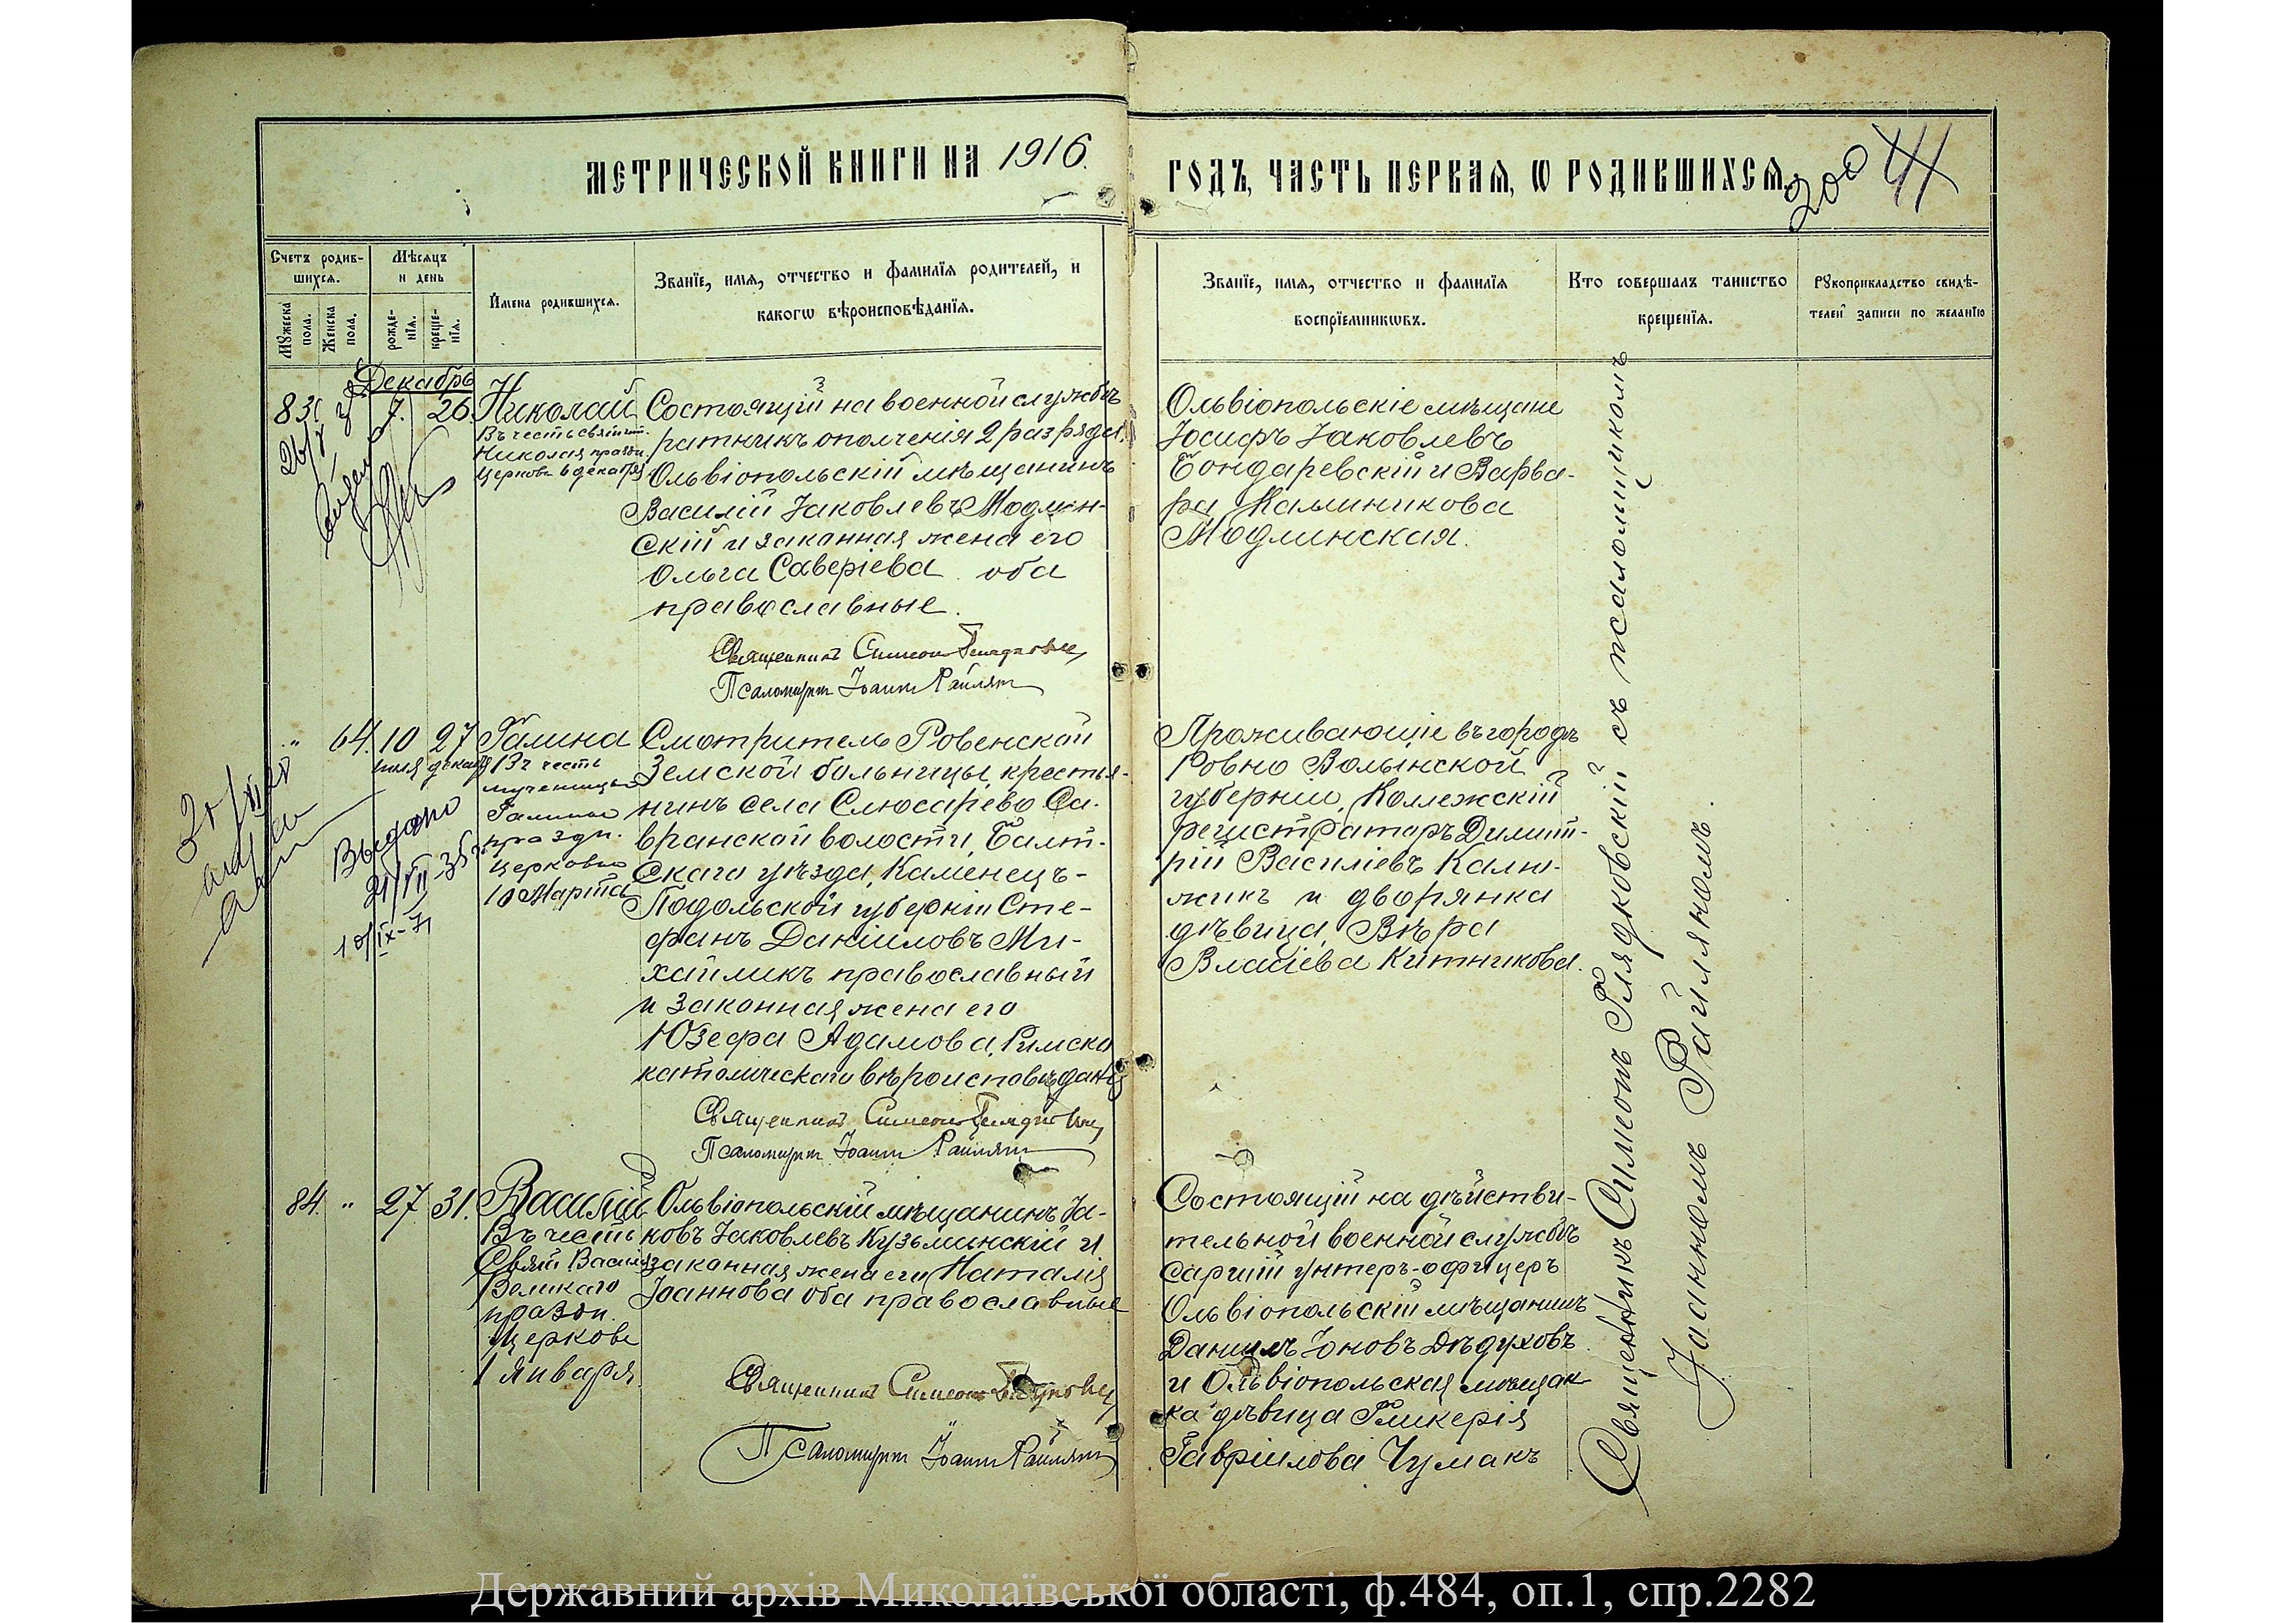 МЕТРИЧЕСКОЙ КНИГИ НА 1916.
ГОДЪ, ЧАСТЬ ПЕРВАЯ, Ѡ РОДИВШИХСЯ.
200
Счетъ родив-
шихся.
Мѣсяцъ
и день
Имена родившихся.
Званїе, имя, отчество и фамилїя родителей, и
какогѡ вѣроисповѣданїя.
Мꙋжеска
пола.
Женска
пола.
рожде-
нїя.
креще-
нїя.
Званїе, имя, отчество и фамилїя
воспрїемникѡвъ.
Кто совершалъ таинство
крещенїя.
Рꙋкоприкладство свидѣ-
телей записи по желанїю
Декабрь
83 7. 26.
Николай
Въ честь святит.
Николая праздн.
Церковью 6 декабря
Состоящій на военной службѣ
ратникъ ополченія 2 разряда,
Ольвіопольскій мѣщанинъ
Василій Іаковлевъ Модлин-
скій и законная жена его
Ольга Саверіева оба
православные.
Священникъ Симеонъ Глядковскій
Псаломщикъ Іоаннъ Райлянъ
Ольвіопольскіе мѣщане
Іосифъ Іаковлевъ
Бондаревскій и Варва-
ра Каллиникова
Модлинская.
" 64. 10 27
іюля декабря
Галина
Въ честь
мученицы
Галины
праздн.
Церковью
10 Марта
Выдано
21/VII-35
10/IX-71
Смотритель Ровенской
Земской больницы, крестья-
нинъ села Слюсарево Са-
вранской волости, Балт-
скаго уѣзда, Каменецъ-
Подольской губерніи Сте-
фанъ Даніиловъ Ми-
хайликъ православный
и законная жена его
Юзефа Адамова, Римско
католическаго вѣроисповѣданія
Священникъ Симеонъ Глядковскій
Псаломщикъ Іоаннъ Райлянъ
Проживающіе въ городѣ
Ровно Волынской
губерніи, Коллежскій
регистраторъ Димит-
рій Василіевъ Калю-
жикъ и дворянка
дѣвица, Вѣра
Власіева Китникова.
84. " 27. 31.
Василій
Въ честь
Свят. Василія
Великаго
праздн.
Церковью
1 Января.
Ольвіопольскій мѣщанинъ Іа-
ковъ Іаковлевъ Кузьминскій и
законная жена его Наталія
Іоаннова оба православные
Священникъ Симеонъ Глядковскій
Псаломщикъ Іоаннъ Райлянъ
Состоящій на дѣйстви-
тельной военной службѣ
старшій унтеръ-офицеръ
Ольвіопольскій мѣщанинъ
Даніилъ Іоновъ Дѣдуховъ
и Ольвіопольская мѣщан-
ка дѣвица Гликерія
Гавріилова Чумакъ
Священникъ Симеонъ Глядковскій съ псаломщикомъ
Іоанномъ Райляномъ.
Державний архів Миколаївської області, ф.484, оп.1, спр.2282